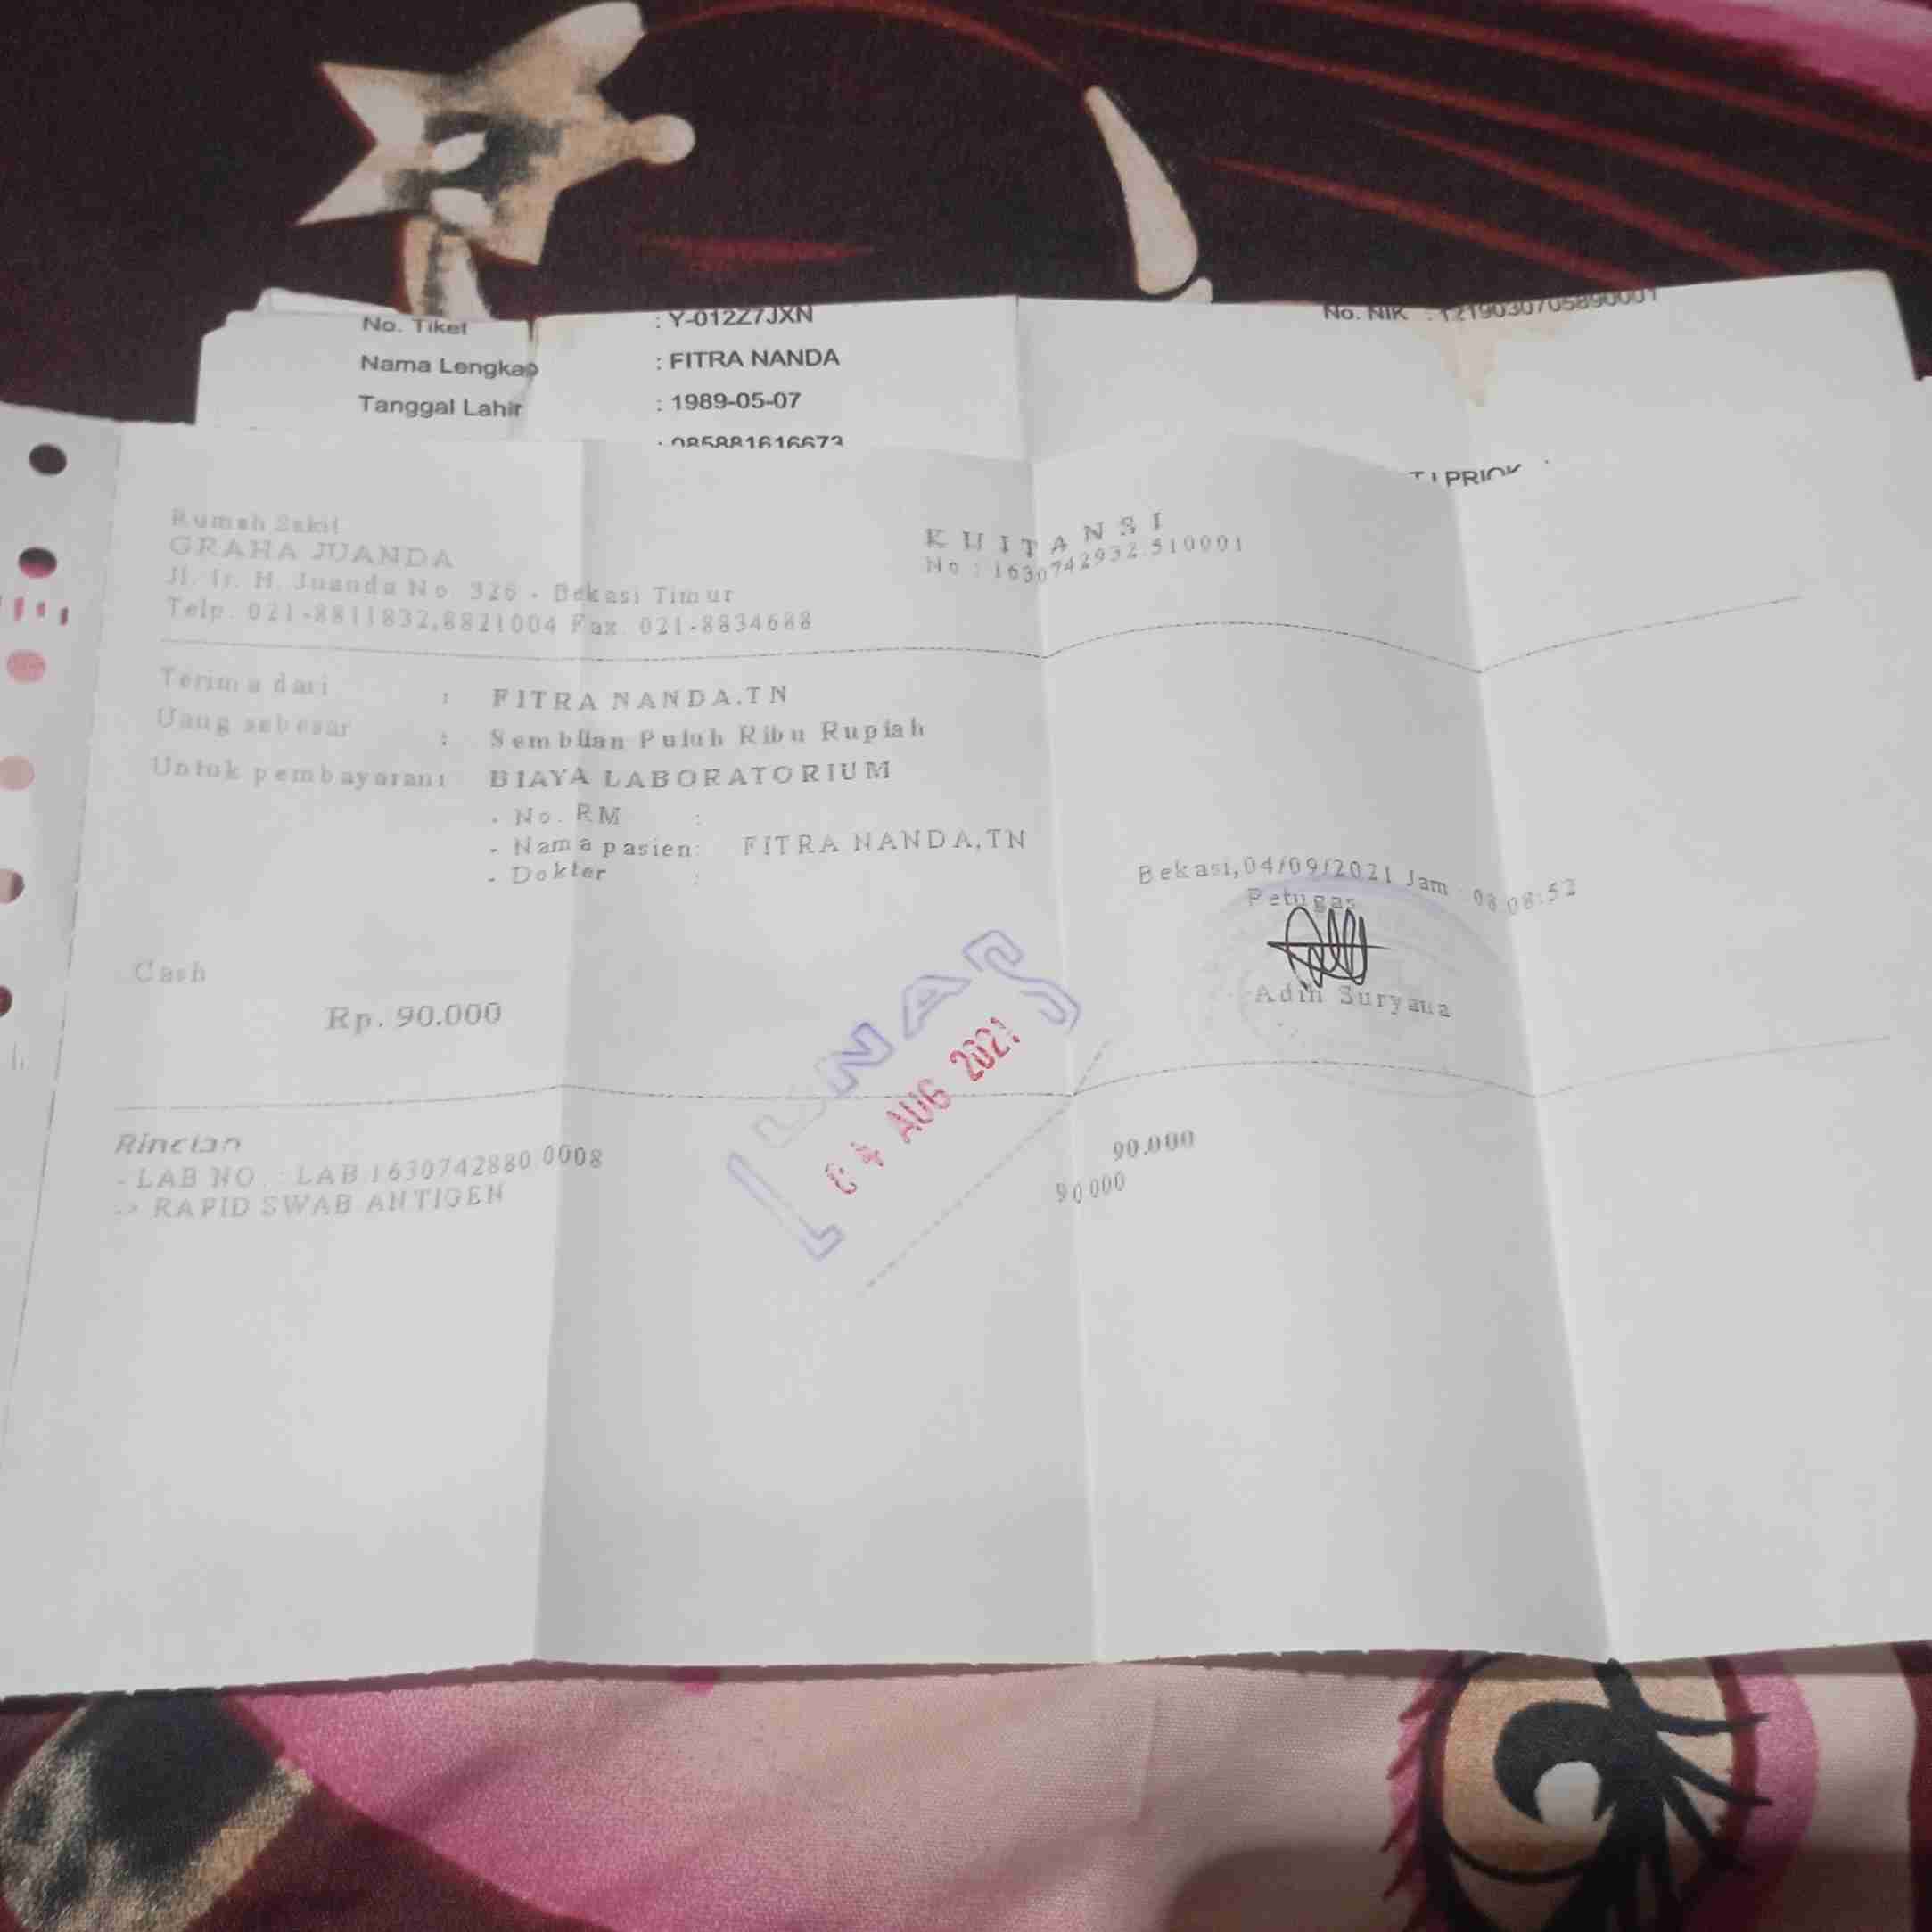 No. Tiket : Y-012Z7JXN
No. NIK : 1219030705890001
Nama Lengkap : FITRA NANDA
Tanggal Lahir : 1989-05-07
: 085881616673
PRIOK
Rumah Sakit
GRAHA JUANDA
Jl. Ir. H. Juanda No 326 - Bekasi Timur
Telp. 021-8811832,8821004 Fax. 021-8834688
KUITANSI
No : 1630742932.510001
Terima dari : FITRA NANDA,TN
Uang sebesar : Sembilan Puluh Ribu Rupiah
Untuk pembayaran: BIAYA LABORATORIUM
- No. RM :
- Nama pasien: FITRA NANDA,TN
- Dokter :
Bekasi,04/09/2021 Jam 08:08:52
Petugas
Adih Suryana
Cash
Rp. 90.000
LUNAS
04 AUG 2021
Rincian
- LAB NO : LAB.1630742880.0008 90.000
-> RAPID SWAB ANTIGEN 90.000